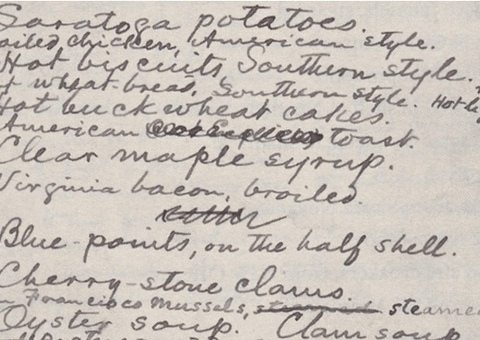 Saratoga potatoes.
oiled chicken, American style.
Hot biscuits, Southern style.
t wheat-bread, Southern style. Hot
Hot buckwheat cakes.
American toast.
Clear maple syrup.
Virginia bacon, broiled.
Blue-points, on the half shell.
Cherry-stone clams.
n Francisco mussels, steamed steame
Oyster soup. Clam soup